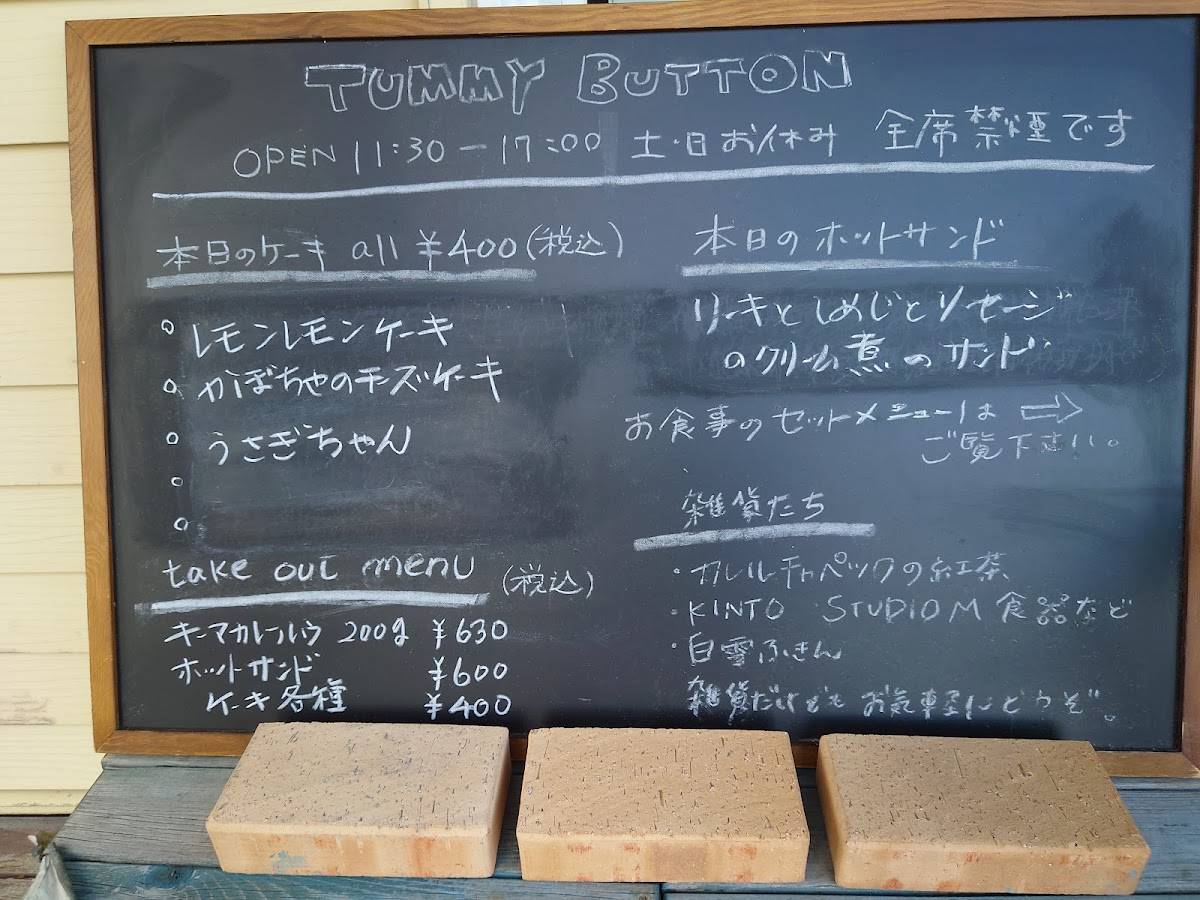 TUMMY BUTTON
OPEN 11:30-17:00 土・日お休み 全席禁煙です
本日のケーキ all ¥400(税込)
レモンレモンケーキ
かぼちゃのチーズケーキ
うさぎちゃん
take out menu (税込)
キーマカレールウ 200g ¥630
ホットサンド ¥600
ケーキ各種 ¥400
本日のホットサンド
リーキとしめじとソーセージ
のクリーム煮のサンド
お食事のセットメニューは ⇨
ご覧下さい。
雑貨たち
・カレルチャペックの紅茶
・KINTO STUDIO M 食器など
・白雪ふきん
雑貨だけでも お気軽にどうぞ。